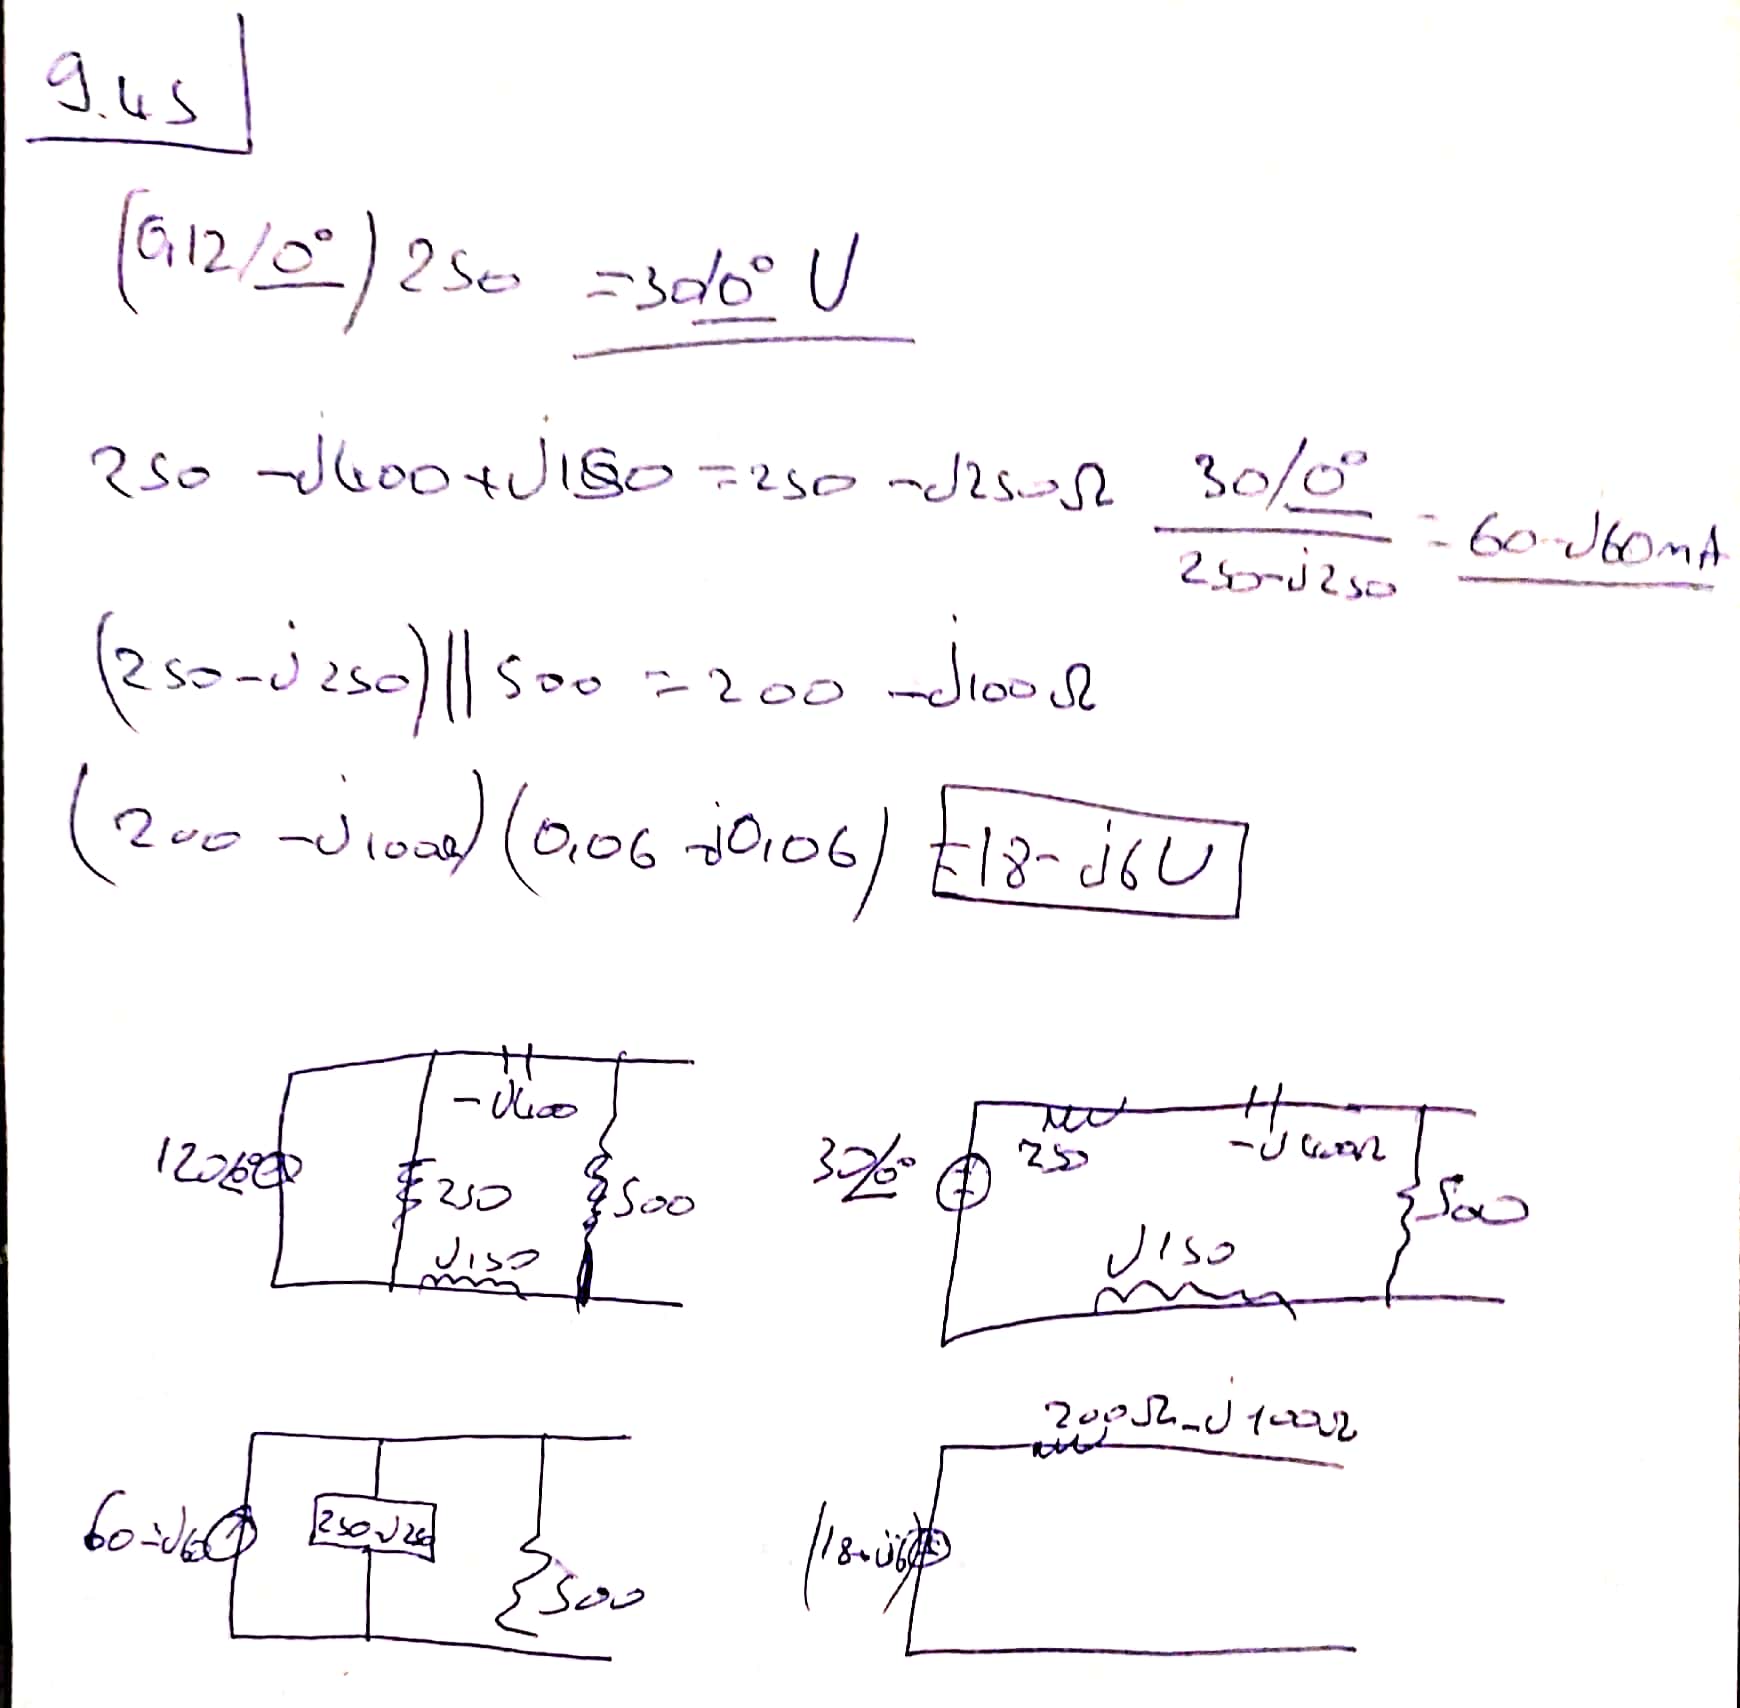 9.45
(0,12/0°) 250 = 30/0° V
250 -J400 + J150 = 250 -J250Ω 30/0° / 250-j250 = 60-J60mA
(250-j250) || 500 = 200 -J100Ω
(200 -J100Ω) (0,06 -j0,06) = 18-j6V
-J400
120/0° 250 500
J150
30/0° 250 -J400Ω 500
J150
60-J60 250-J250 500
200Ω-J100Ω
18-j6